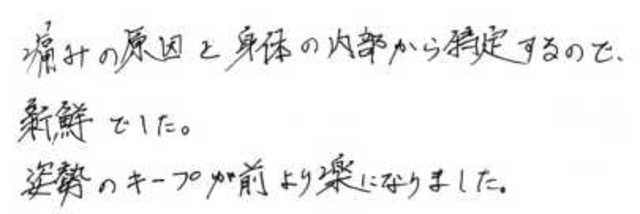 痛みの原因を身体の内部から特定するので、
新鮮でした。
姿勢のキープが前より楽になりました。